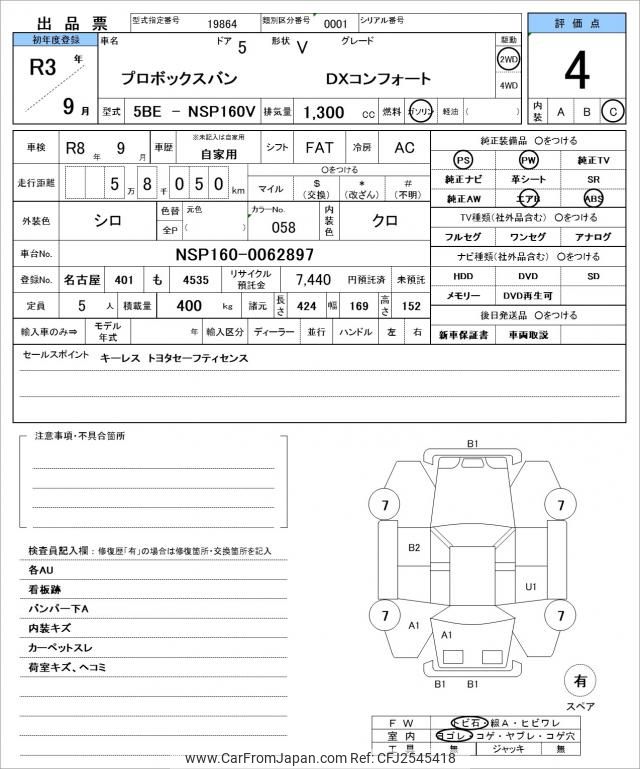 出品票 型式指定番号 19864 類別区分番号 0001 シリアル番号
評価点
初年度登録 車名 ドア 5 形状 V グレード 駆動
R3 年 プロボックスバン DXコンフォート 2WD 4
4WD
9 月 型式 5BE － NSP160V 排気量 1,300 cc 燃料 ガソリン 軽油 ( ) 内装 A B C
車検 R8 年 9 月 車歴 ※未記入は自家用 自家用 シフト FAT 冷房 AC 純正装備品 〇をつける
PS PW 純正TV
走行距離 5 万 8 千 0 5 0 km 〇をつける
マイル $ (交換) * (改ざん) # (不明) 純正ナビ 革シート SR
純正AW エアB ABS
外装色 シロ 色替 元色 カラーNo. 内装色 クロ TV種類(社外品含む) 〇をつける
全P ( ) 058 フルセグ ワンセグ アナログ
車台No. NSP160-0062897 ナビ種類(社外品含む) 〇をつける
登録No. 名古屋 401 も 4535 リサイクル預託金 7,440 円預託済 未預託 HDD DVD SD
定員 5 人 積載量 400 kg 諸元 長さ 424 幅 169 高さ 152 メモリー DVD再生可
後日発送品 〇をつける
輸入車のみ⇒ モデル年式 年 輸入区分 ディーラー 並行 ハンドル 左 右 新車保証書 車両取説
セールスポイント キーレス トヨタセーフティセンス
注意事項・不具合箇所
B1
7 7
B2
U1
7 7
A1 A1
B1 B1
検査員記入欄：修復歴「有」の場合は修復箇所・交換箇所を記入
各AU
看板跡
バンパー下A
内装キズ
カーペットスレ
荷室キズ、ヘコミ
有
スペア
FW トビ石・線A・ヒビワレ
室内 ヨゴレ・コゲ・ヤブレ・コゲ穴
工具 無 ジャッキ 無
www.CarFromJapan.com Ref: CFJ2545418